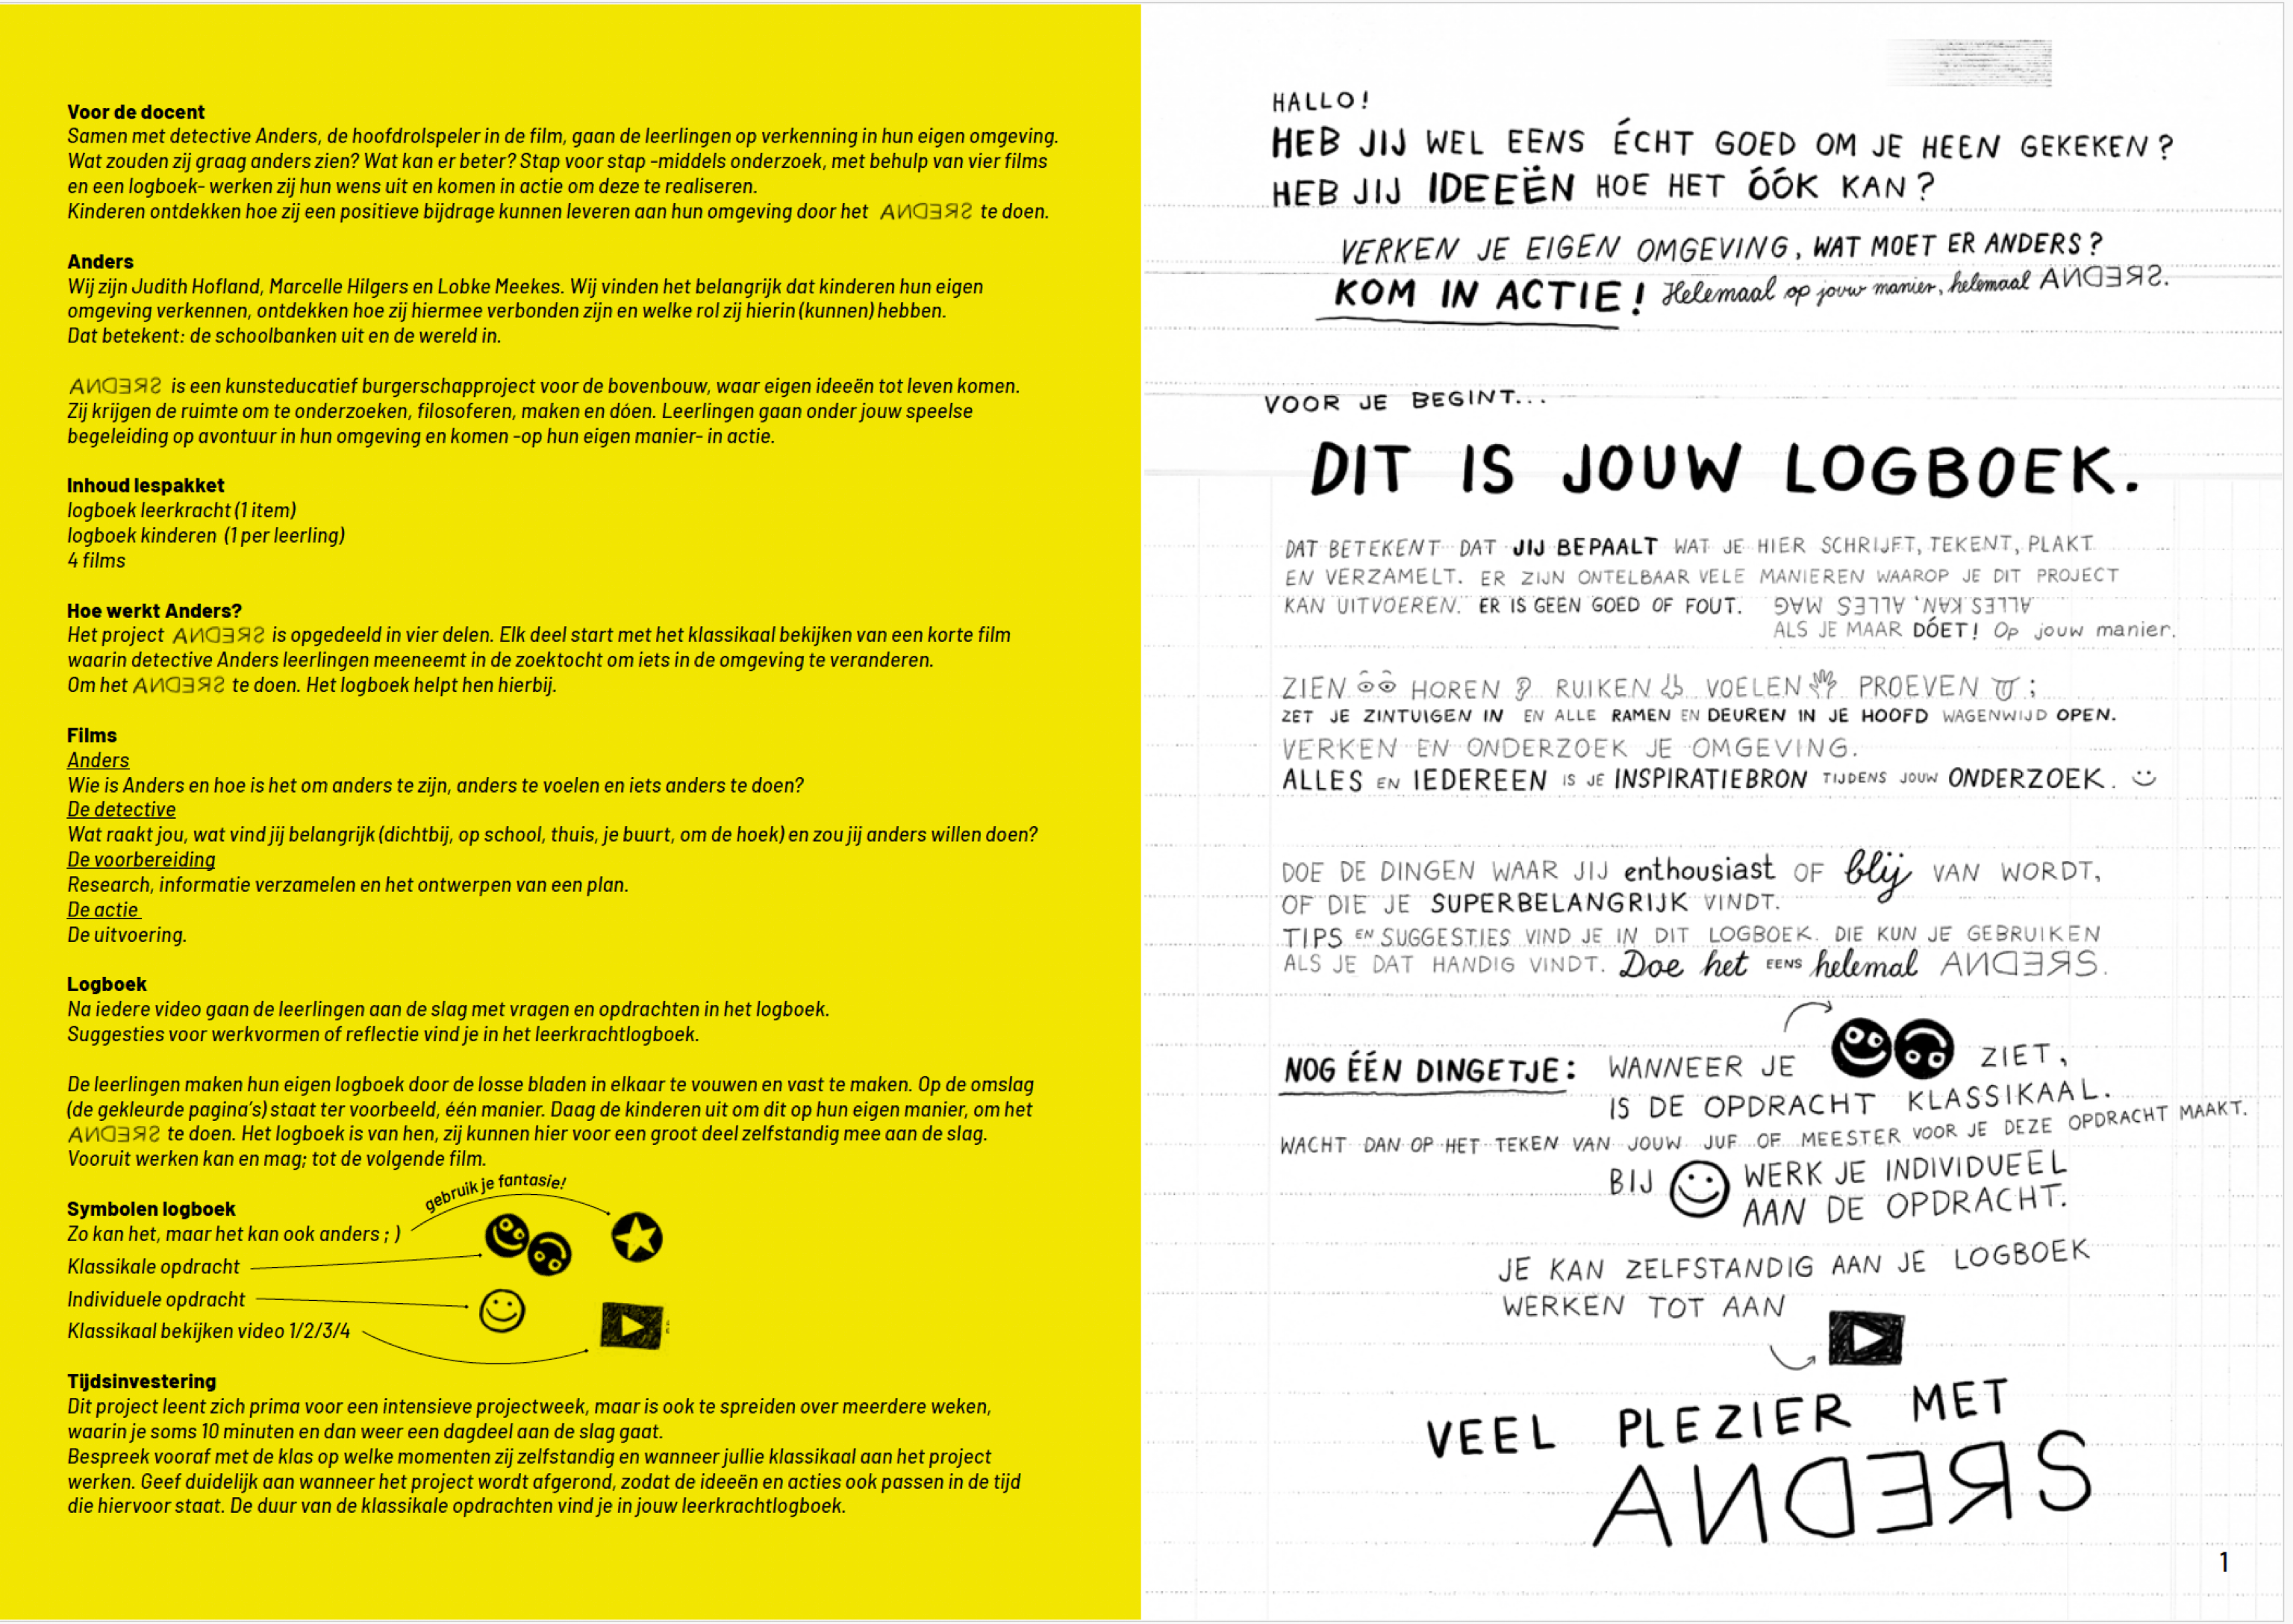 Voor de docent
Samen met detective Anders, de hoofdrolspeler in de film, gaan de leerlingen op verkenning in hun eigen omgeving.
Wat zouden zij graag anders zien? Wat kan er beter? Stap voor stap -middels onderzoek, met behulp van vier films
en een logboek- werken zij hun wens uit en komen in actie om deze te realiseren.
Kinderen ontdekken hoe zij een positieve bijdrage kunnen leveren aan hun omgeving door het ANDERS te doen.
Anders
Wij zijn Judith Hofland, Marcelle Hilgers en Lobke Meekes. Wij vinden het belangrijk dat kinderen hun eigen
omgeving verkennen, ontdekken hoe zij hiermee verbonden zijn en welke rol zij hierin (kunnen) hebben.
Dat betekent: de schoolbanken uit en de wereld in.
ANDERS is een kunsteducatief burgerschapproject voor de bovenbouw, waar eigen ideeën tot leven komen.
Zij krijgen de ruimte om te onderzoeken, filosoferen, maken en dóen. Leerlingen gaan onder jouw speelse
begeleiding op avontuur in hun omgeving en komen -op hun eigen manier- in actie.
Inhoud lespakket
logboek leerkracht (1 item)
logboek kinderen (1 per leerling)
4 films
Hoe werkt Anders?
Het project ANDERS is opgedeeld in vier delen. Elk deel start met het klassikaal bekijken van een korte film
waarin detective Anders leerlingen meeneemt in de zoektocht om iets in de omgeving te veranderen.
Om het ANDERS te doen. Het logboek helpt hen hierbij.
Films
Anders
Wie is Anders en hoe is het om anders te zijn, anders te voelen en iets anders te doen?
De detective
Wat raakt jou, wat vind jij belangrijk (dichtbij, op school, thuis, je buurt, om de hoek) en zou jij anders willen doen?
De voorbereiding
Research, informatie verzamelen en het ontwerpen van een plan.
De actie
De uitvoering.
Logboek
Na iedere video gaan de leerlingen aan de slag met vragen en opdrachten in het logboek.
Suggesties voor werkvormen of reflectie vind je in het leerkrachtlogboek.
De leerlingen maken hun eigen logboek door de losse bladen in elkaar te vouwen en vast te maken. Op de omslag
(de gekleurde pagina's) staat ter voorbeeld, één manier. Daag de kinderen uit om dit op hun eigen manier, om het
ANDERS te doen. Het logboek is van hen, zij kunnen hier voor een groot deel zelfstandig mee aan de slag.
Vooruit werken kan en mag; tot de volgende film.
gebruik je fantasie!
Symbolen logboek
Zo kan het, maar het kan ook anders ; )
Klassikale opdracht
Individuele opdracht
Klassikaal bekijken video 1/2/3/4
Tijdsinvestering
Dit project leent zich prima voor een intensieve projectweek, maar is ook te spreiden over meerdere weken,
waarin je soms 10 minuten en dan weer een dagdeel aan de slag gaat.
Bespreek vooraf met de klas op welke momenten zij zelfstandig en wanneer jullie klassikaal aan het project
werken. Geef duidelijk aan wanneer het project wordt afgerond, zodat de ideeën en acties ook passen in de tijd
die hiervoor staat. De duur van de klassikale opdrachten vind je in jouw leerkrachtlogboek.
HALLO!
HEB JIJ WEL EENS ÉCHT GOED OM JE HEEN GEKEKEN?
HEB JIJ IDEEËN HOE HET ÓÓK KAN?
VERKEN JE EIGEN OMGEVING, WAT MOET ER ANDERS?
KOM IN ACTIE! Helemaal op jouw manier, helemaal ANDERS.
VOOR JE BEGINT...
DIT IS JOUW LOGBOEK.
DAT BETEKENT DAT JIJ BEPAALT WAT JE HIER SCHRIJFT, TEKENT, PLAKT
EN VERZAMELT. ER ZIJN ONTELBAAR VELE MANIEREN WAAROP JE DIT PROJECT
KAN UITVOEREN. ER IS GEEN GOED OF FOUT. ALLES KAN, ALLES MAG
ALS JE MAAR DÓET! Op jouw manier.
ZIEN HOREN RUIKEN VOELEN PROEVEN ;
ZET JE ZINTUIGEN IN EN ALLE RAMEN EN DEUREN IN JE HOOFD WAGENWIJD OPEN.
VERKEN EN ONDERZOEK JE OMGEVING.
ALLES EN IEDEREEN IS JE INSPIRATIEBRON TIJDENS JOUW ONDERZOEK.
DOE DE DINGEN WAAR JIJ enthousiast OF blij VAN WORDT,
OF DIE JE SUPERBELANGRIJK VINDT.
TIPS EN SUGGESTIES VIND JE IN DIT LOGBOEK. DIE KUN JE GEBRUIKEN
ALS JE DAT HANDIG VINDT. Doe het EENS helemal ANDERS.
NOG ÉÉN DINGETJE: WANNEER JE ZIET,
IS DE OPDRACHT KLASSIKAAL.
WACHT DAN OP HET TEKEN VAN JOUW JUF OF MEESTER VOOR JE DEZE OPDRACHT MAAKT.
BIJ WERK JE INDIVIDUEEL
AAN DE OPDRACHT.
JE KAN ZELFSTANDIG AAN JE LOGBOEK
WERKEN TOT AAN
VEEL PLEZIER MET
ANDERS
1